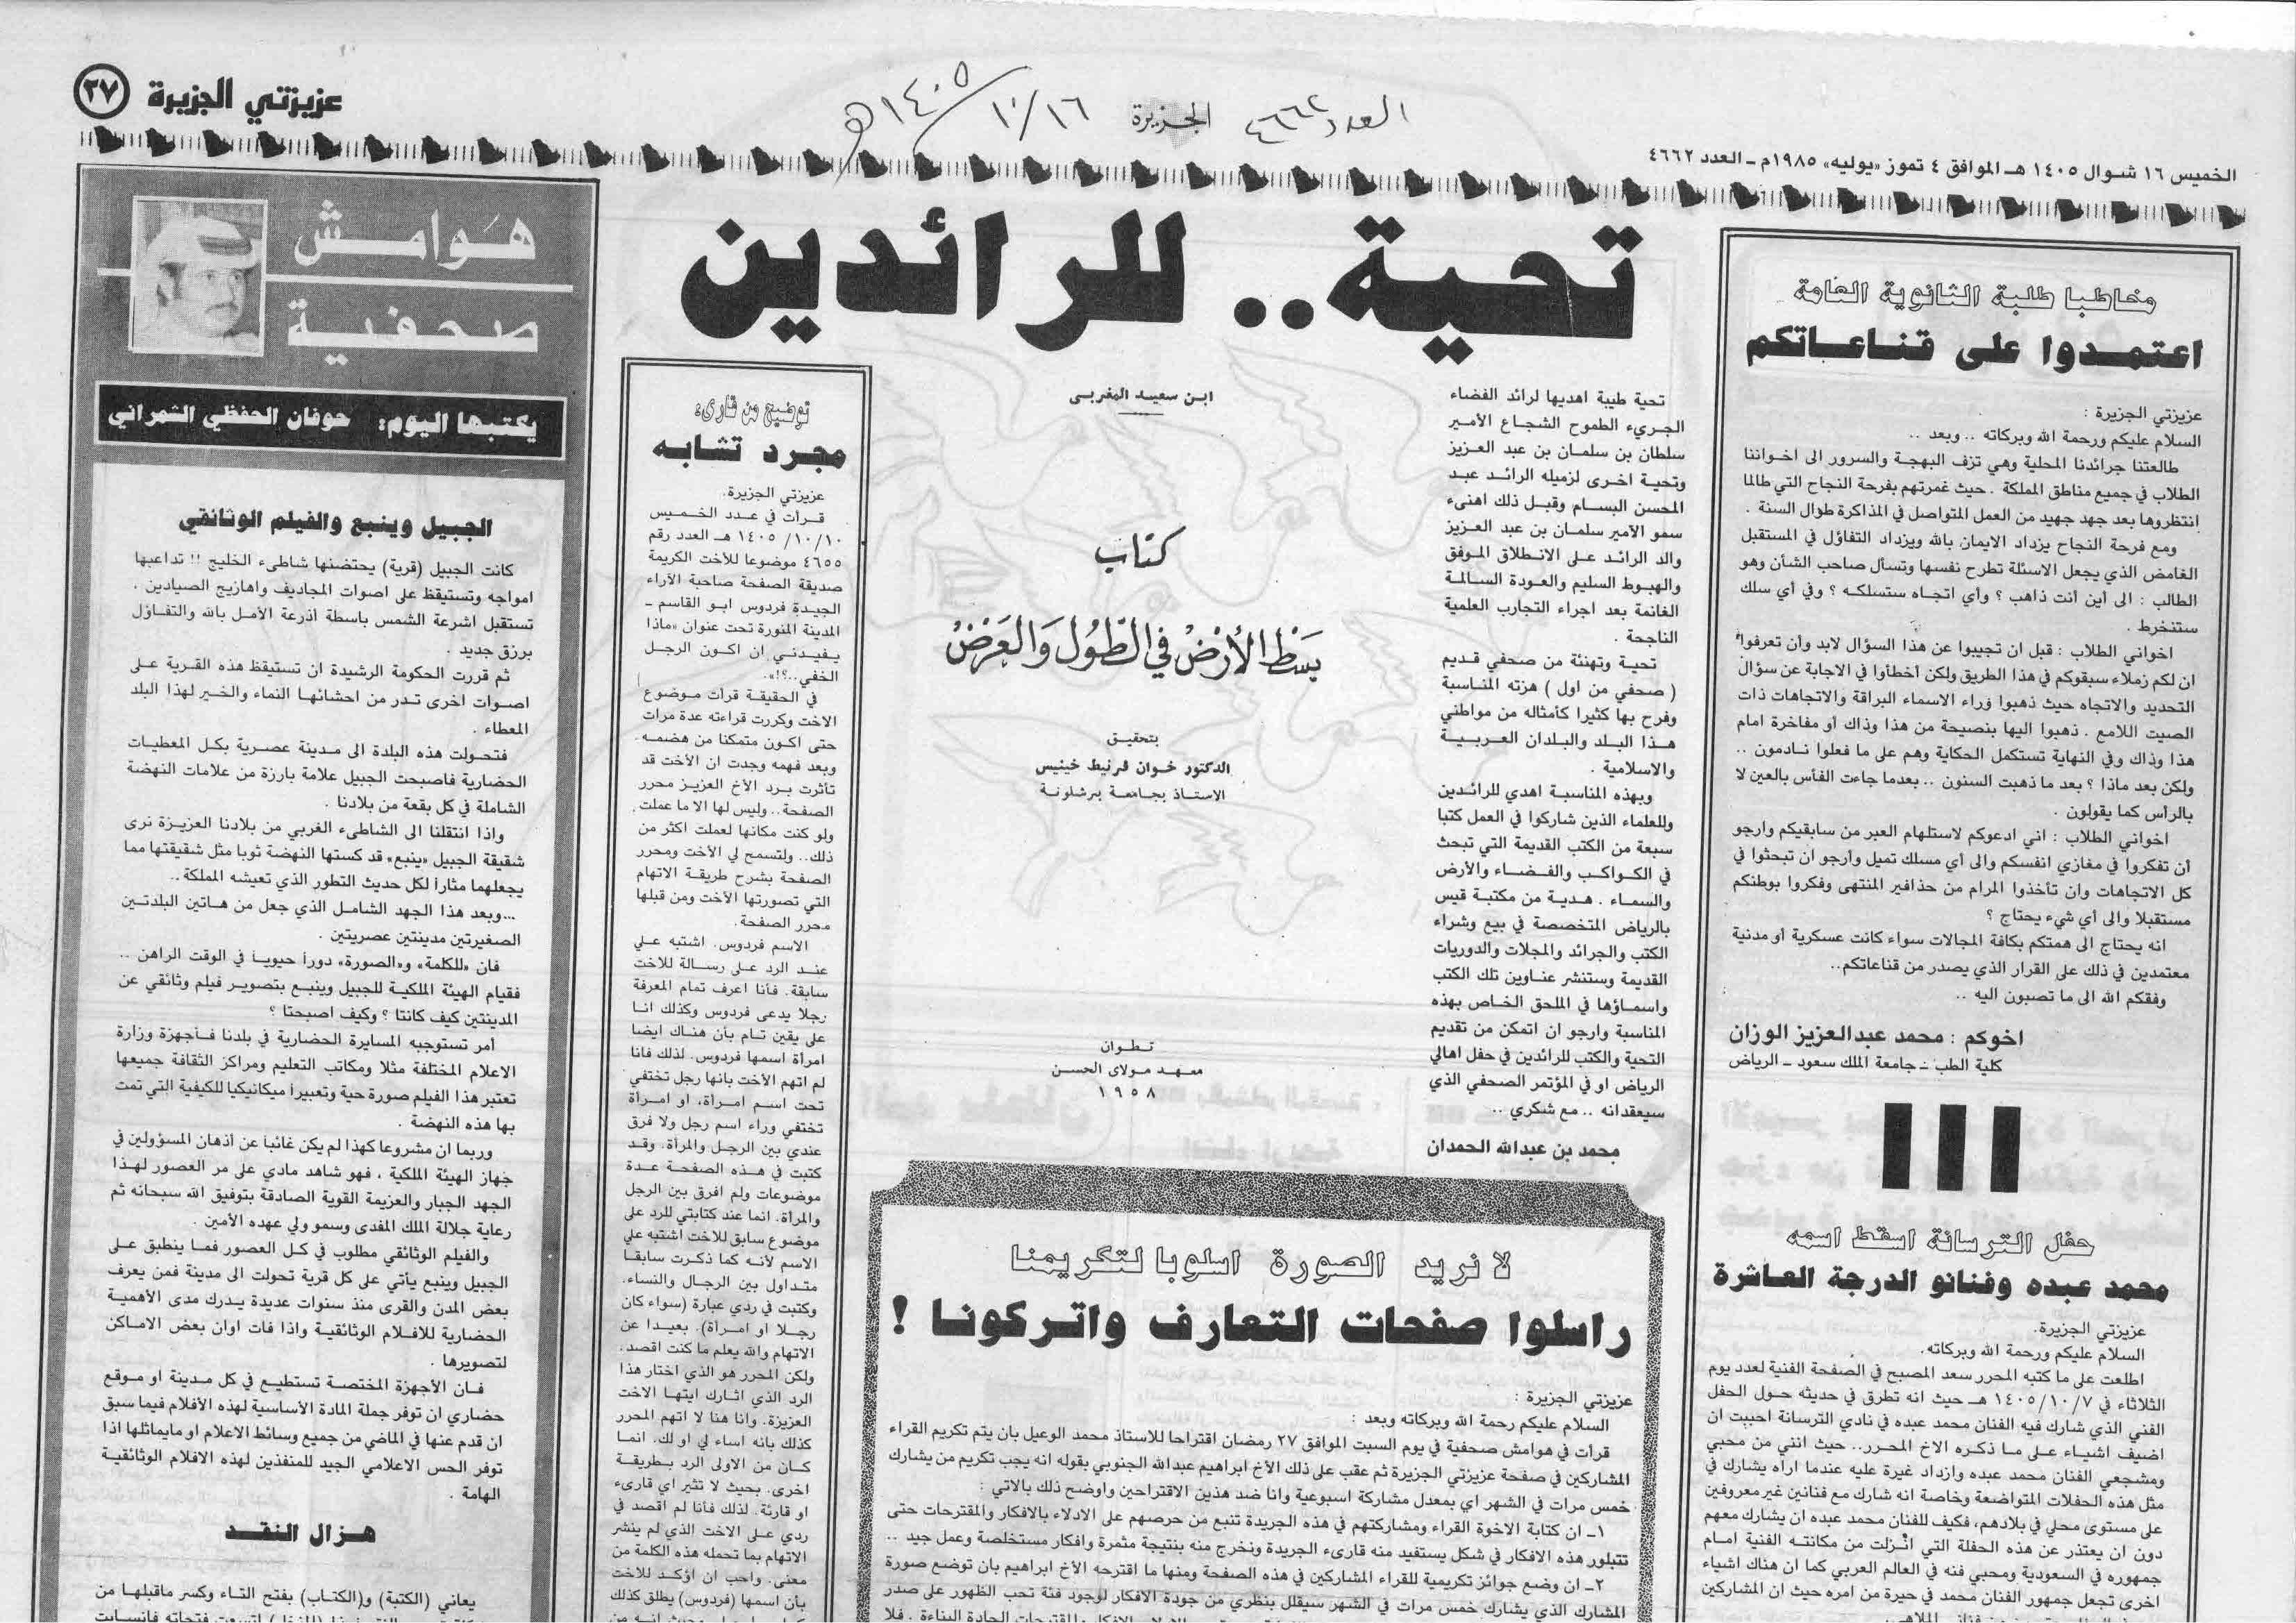 العدد ٤٦٦٢ الجزيرة ١٠/١٦/١٤٠٥هـ
عزيزتي الجزيرة ٢٧
الخميس ١٦ شوال ١٤٠٥ هـ الموافق ٤ تموز «يوليه» ١٩٨٥م ـ العدد ٤٦٦٢
مخاطبا طلبة الثانوية العامة
اعتمدوا على قناعاتكم
عزيزتي الجزيرة :
السلام عليكم ورحمة الله وبركاته .. وبعد ..
طالعتنا جرائدنا المحلية وهي تزف البهجة والسرور الى اخواننا
الطلاب في جميع مناطق المملكة . حيث غمرتهم بفرحة النجاح التي طالما
إنتظروها بعد جهد جهيد من العمل المتواصل في المذاكرة طوال السنة .
ومع فرحة النجاح يزداد الايمان بالله ويزداد التفاؤل في المستقبل
الغامض الذي يجعل الاسئلة تطرح نفسها وتسأل صاحب الشأن وهو
الطالب : الى أين أنت ذاهب ؟ وأي اتجاه ستسلكه ؟ وفي أي سلك
ستنخرط .
اخواني الطلاب : قبل ان تجيبوا عن هذا السؤال لابد وأن تعرفوا
ان لكم زملاء سبقوكم في هذا الطريق ولكن أخطأوا في الاجابة عن سؤال
التحديد والاتجاه حيث ذهبوا وراء الاسماء البراقة والاتجاهات ذات
الصيت اللامع . ذهبوا اليها بنصيحة من هذا وذاك أو مفاخرة امام
هذا وذاك وفي النهاية تستكمل الحكاية وهم على ما فعلوا نادمون ..
ولكن بعد ماذا ؟ بعد ما ذهبت السنون .. بعدما جاءت الفأس بالعين لا
بالرأس كما يقولون .
اخواني الطلاب : اني ادعوكم لاستلهام العبر من سابقيكم وارجو
أن تفكروا في مغازي انفسكم والى أي مسلك تميل وأرجو ان تبحثوا في
كل الاتجاهات وان تأخذوا المرام من حذافير المنتهى وفكروا بوطنكم
مستقبلا والى أي شيء يحتاج ؟
انه يحتاج الى همتكم بكافة المجالات سواء كانت عسكرية أو مدنية
معتمدين في ذلك على القرار الذي يصدر من قناعاتكم..
وفقكم الله الى ما تصبون اليه ..
اخوكم : محمد عبدالعزيز الوزان
كلية الطب ـ جامعة الملك سعود ـ الرياض
حفل الترسانة اسقط اسمه
محمد عبده وفنانو الدرجة العاشرة
عزيزتي الجزيرة.
السلام عليكم ورحمة الله وبركاته.
اطلعت على ما كتبه المحرر سعد المصبح في الصفحة الفنية لعدد يوم
الثلاثاء في ١٤٠٥/١٠/٧ هـ حيث انه تطرق في حديثه حول الحفل
الفني الذي شارك فيه الفنان محمد عبده في نادي الترسانة احببت ان
اضيف اشياء على ما ذكره الاخ المحرر.. حيث انني من محبي
ومشجعي الفنان محمد عبده وازداد غيرة عليه عندما اراه يشارك في
مثل هذه الحفلات المتواضعة وخاصة انه شارك مع فنانين غير معروفين
على مستوى محلي في بلادهم، فكيف للفنان محمد عبده ان يشارك معهم
دون ان يعتذر عن هذه الحفلة التي انزلت من مكانته الفنية امام
جمهوره في السعودية ومحبي فنه في العالم العربي كما ان هناك اشياء
اخرى تجعل جمهور الفنان محمد في حيرة من امره حيث ان المشاركين
تحية.. للرائدين
تحية طيبة اهديها لرائد الفضاء
الجريء الطموح الشجاع الأمير
سلطان بن سلمان بن عبد العزيز
وتحية اخرى لزميله الرائد عبد
المحسن البسام وقبل ذلك اهنىء
سمو الأمير سلمان بن عبد العزيز
والد الرائد على الانطلاق الموفق
والهبوط السليم والعودة السالمة
الغانمة بعد اجراء التجارب العلمية
الناجحة .
تحية وتهنئة من صحفي قديم
( صحفي من اول ) هزته المناسبة
وفرح بها كثيرا كأمثاله من مواطني
هذا البلد والبلدان العربية
والاسلامية .
وبهذه المناسبة اهدي للرائدين
وللعلماء الذين شاركوا في العمل كتبا
سبعة من الكتب القديمة التي تبحث
في الكواكب والفضاء والأرض
والسماء . هدية من مكتبة قيس
بالرياض المتخصصة في بيع وشراء
الكتب والجرائد والمجلات والدوريات
القديمة وستنشر عناوين تلك الكتب
واسماؤها في الملحق الخاص بهذه
المناسبة وارجو ان اتمكن من تقديم
التحية والكتب للرائدين في حفل اهالي
الرياض او في المؤتمر الصحفي الذي
سيعقدانه .. مع شكري ..
محمد بن عبدالله الحمدان
ابن سعيد المغربي
كتاب
بَسْط الأرْضْ في الطّول وَالعَرْضْ
بتحقيق
الدكتور خوان قرنيط خينيس
الاستاذ بجامعة برشلونة
تطوان
معهد مولاي الحسن
١٩٥٨
لا نريد الصورة اسلوبا لتكريمنا
راسلوا صفحات التعارف واتركونا !
عزيزتي الجزيرة :
السلام عليكم رحمة الله وبركاته وبعد :
قرأت في هوامش صحفية في يوم السبت الموافق ٢٧ رمضان اقتراحا للاستاذ محمد الوعيل بان يتم تكريم القراء
المشاركين في صفحة عزيزتي الجزيرة ثم عقب على ذلك الأخ ابراهيم عبدالله الجنوبي بقوله انه يجب تكريم من يشارك
خمس مرات في الشهر اي بمعدل مشاركة اسبوعية وانا ضد هذين الاقتراحين واوضح ذلك بالاتي :
١ـ ان كتابة الاخوة القراء ومشاركتهم في هذه الجريدة تنبع من حرصهم على الادلاء بالافكار والمقترحات حتى
تتبلور هذه الافكار في شكل يستفيد منه قارىء الجريدة ونخرج منه بنتيجة مثمرة وافكار مستخلصة وعمل جيد ..
٢ـ ان وضع جوائز تكريمية للقراء المشاركين في هذه الصفحة ومنها ما اقترحه الأخ ابراهيم بان توضع صورة
المشارك الذي يشارك خمس مرات في الشهر سيقلل بنظري من جودة الافكار لوجود فئة تحب الظهور على صدر
توضيح من قارىء
مجرد تشابه
عزيزتي الجزيرة.
قرأت في عدد الخميس
١٠/١٠/ ١٤٠٥ هـ العدد رقم
٤٦٥٥ موضوعا للأخت الكريمة
صديقة الصفحة صاحبة الآراء
الجيدة فردوس ابو القاسم ـ
المدينة المنورة تحت عنوان «ماذا
يفيدني ان اكون الرجل
الخفي..؟!».
في الحقيقة قرأت موضوع
الاخت وكررت قراءته عدة مرات
حتى اكون متمكنا من هضمه.
وبعد فهمه وجدت ان الأخت قد
تأثرت برد الأخ العزيز محرر
الصفحة.. وليس لها الا ما عملت
ولو كنت مكانها لعملت اكثر من
ذلك.. ولتسمح لي الأخت ومحرر
الصفحة بشرح طريقة الاتهام
التي تصورتها الأخت ومن قبلها
محرر الصفحة.
الاسم فردوس. اشتبه علي
عند الرد على رسالة للاخت
سابقة. فأنا اعرف تمام المعرفة
رجلا يدعى فردوس وكذلك انا
على يقين تام بأن هناك ايضا
امرأة اسمها فردوس. لذلك فانا
لم اتهم الأخت بانها رجل تختفي
تحت اسم امرأة، او امرأة
تختفي وراء اسم رجل ولا فرق
عندي بين الرجل والمرأة. وقد
كتبت في هذه الصفحة عدة
موضوعات ولم افرق بين الرجل
والمرأة. انما عند كتابتي للرد على
موضوع سابق للاخت اشتبه علي
الاسم لأنه كما ذكرت سابقا
متداول بين الرجال والنساء.
وكتبت في ردي عبارة (سواء كان
رجلا او امرأة). بعيدا عن
الاتهام والله يعلم ما كنت اقصد.
ولكن المحرر هو الذي اختار هذا
الرد الذي اثارك ايتها الاخت
العزيزة. وانا هنا لا اتهم المحرر
كذلك بانه اساء لي او لك. انما
كان من الاولى الرد بطريقة
اخرى. بحيث لا تثير اي قارىء
او قارئة. لذلك فأنا لم اقصد في
ردي على الاخت الذي لم ينشر
الاتهام بما تحمله هذه الكلمة من
معنى. واحب ان اؤكد للاخت
بأن اسمها (فردوس) يطلق كذلك
هَوامش
صحفية
يكتبها اليوم: حوفان الحفظي الشمراني
الجبيل وينبع والفيلم الوثائقي
كانت الجبيل (قرية) يحتضنها شاطىء الخليج !! تداعبها
امواجه وتستيقظ على اصوات المجاديف واهازيج الصيادين .
تستقبل اشرعة الشمس باسطة أذرعة الأمل بالله والتفاؤل
برزق جديد .
ثم قررت الحكومة الرشيدة ان تستيقظ هذه القرية على
اصوات اخرى تدر من احشائها النماء والخير لهذا البلد
المعطاء .
فتحولت هذه البلدة الى مدينة عصرية بكل المعطيات
الحضارية فاصبحت الجبيل علامة بارزة من علامات النهضة
الشاملة في كل بقعة من بلادنا .
واذا انتقلنا الى الشاطىء الغربي من بلادنا العزيزة نرى
شقيقة الجبيل «ينبع» قد كستها النهضة ثوبا مثل شقيقتها مما
يجعلهما مثاراً لكل حديث التطور الذي تعيشه المملكة ..
...وبعد هذا الجهد الشامل الذي جعل من هاتين البلدتين
الصغيرتين مدينتين عصريتين .
فان «للكلمة» و«الصورة» دوراً حيوياً في الوقت الراهن ..
فقيام الهيئة الملكية للجبيل وينبع بتصوير فيلم وثائقي عن
المدينتين كيف كانتا ؟ وكيف اصبحتا ؟
أمر تستوجبه المسايرة الحضارية في بلدنا فأجهزة وزارة
الاعلام المختلفة مثلا ومكاتب التعليم ومراكز الثقافة جميعها
تعتبر هذا الفيلم صورة حية وتعبيرا ميكانيكيا للكيفية التي تمت
بها هذه النهضة .
وربما ان مشروعا كهذا لم يكن غائباً عن أذهان المسؤولين في
جهاز الهيئة الملكية ، فهو شاهد مادي على مر العصور لهذا
الجهد الجبار والعزيمة القوية الصادقة بتوفيق الله سبحانه ثم
رعاية جلالة الملك المفدى وسمو ولي عهده الأمين .
والفيلم الوثائقي مطلوب في كل العصور فما ينطبق على
الجبيل وينبع يأتي على كل قرية تحولت الى مدينة فمن يعرف
بعض المدن والقرى منذ سنوات عديدة يدرك مدى الأهمية
الحضارية للافلام الوثائقية واذا فات اوان بعض الاماكن
لتصويرها .
فان الأجهزة المختصة تستطيع في كل مدينة او موقع
حضاري ان توفر جملة المادة الأساسية لهذه الأفلام فيما سبق
ان قدم عنها في الماضي من جميع وسائط الاعلام او مايماثلها اذا
توفر الحس الاعلامي الجيد للمنفذين لهذه الافلام الوثائقية
الهامة .
هزال النقد
يعاني (الكتبة) و(الكتاب) بفتح التاء وكسر ماقبلها من